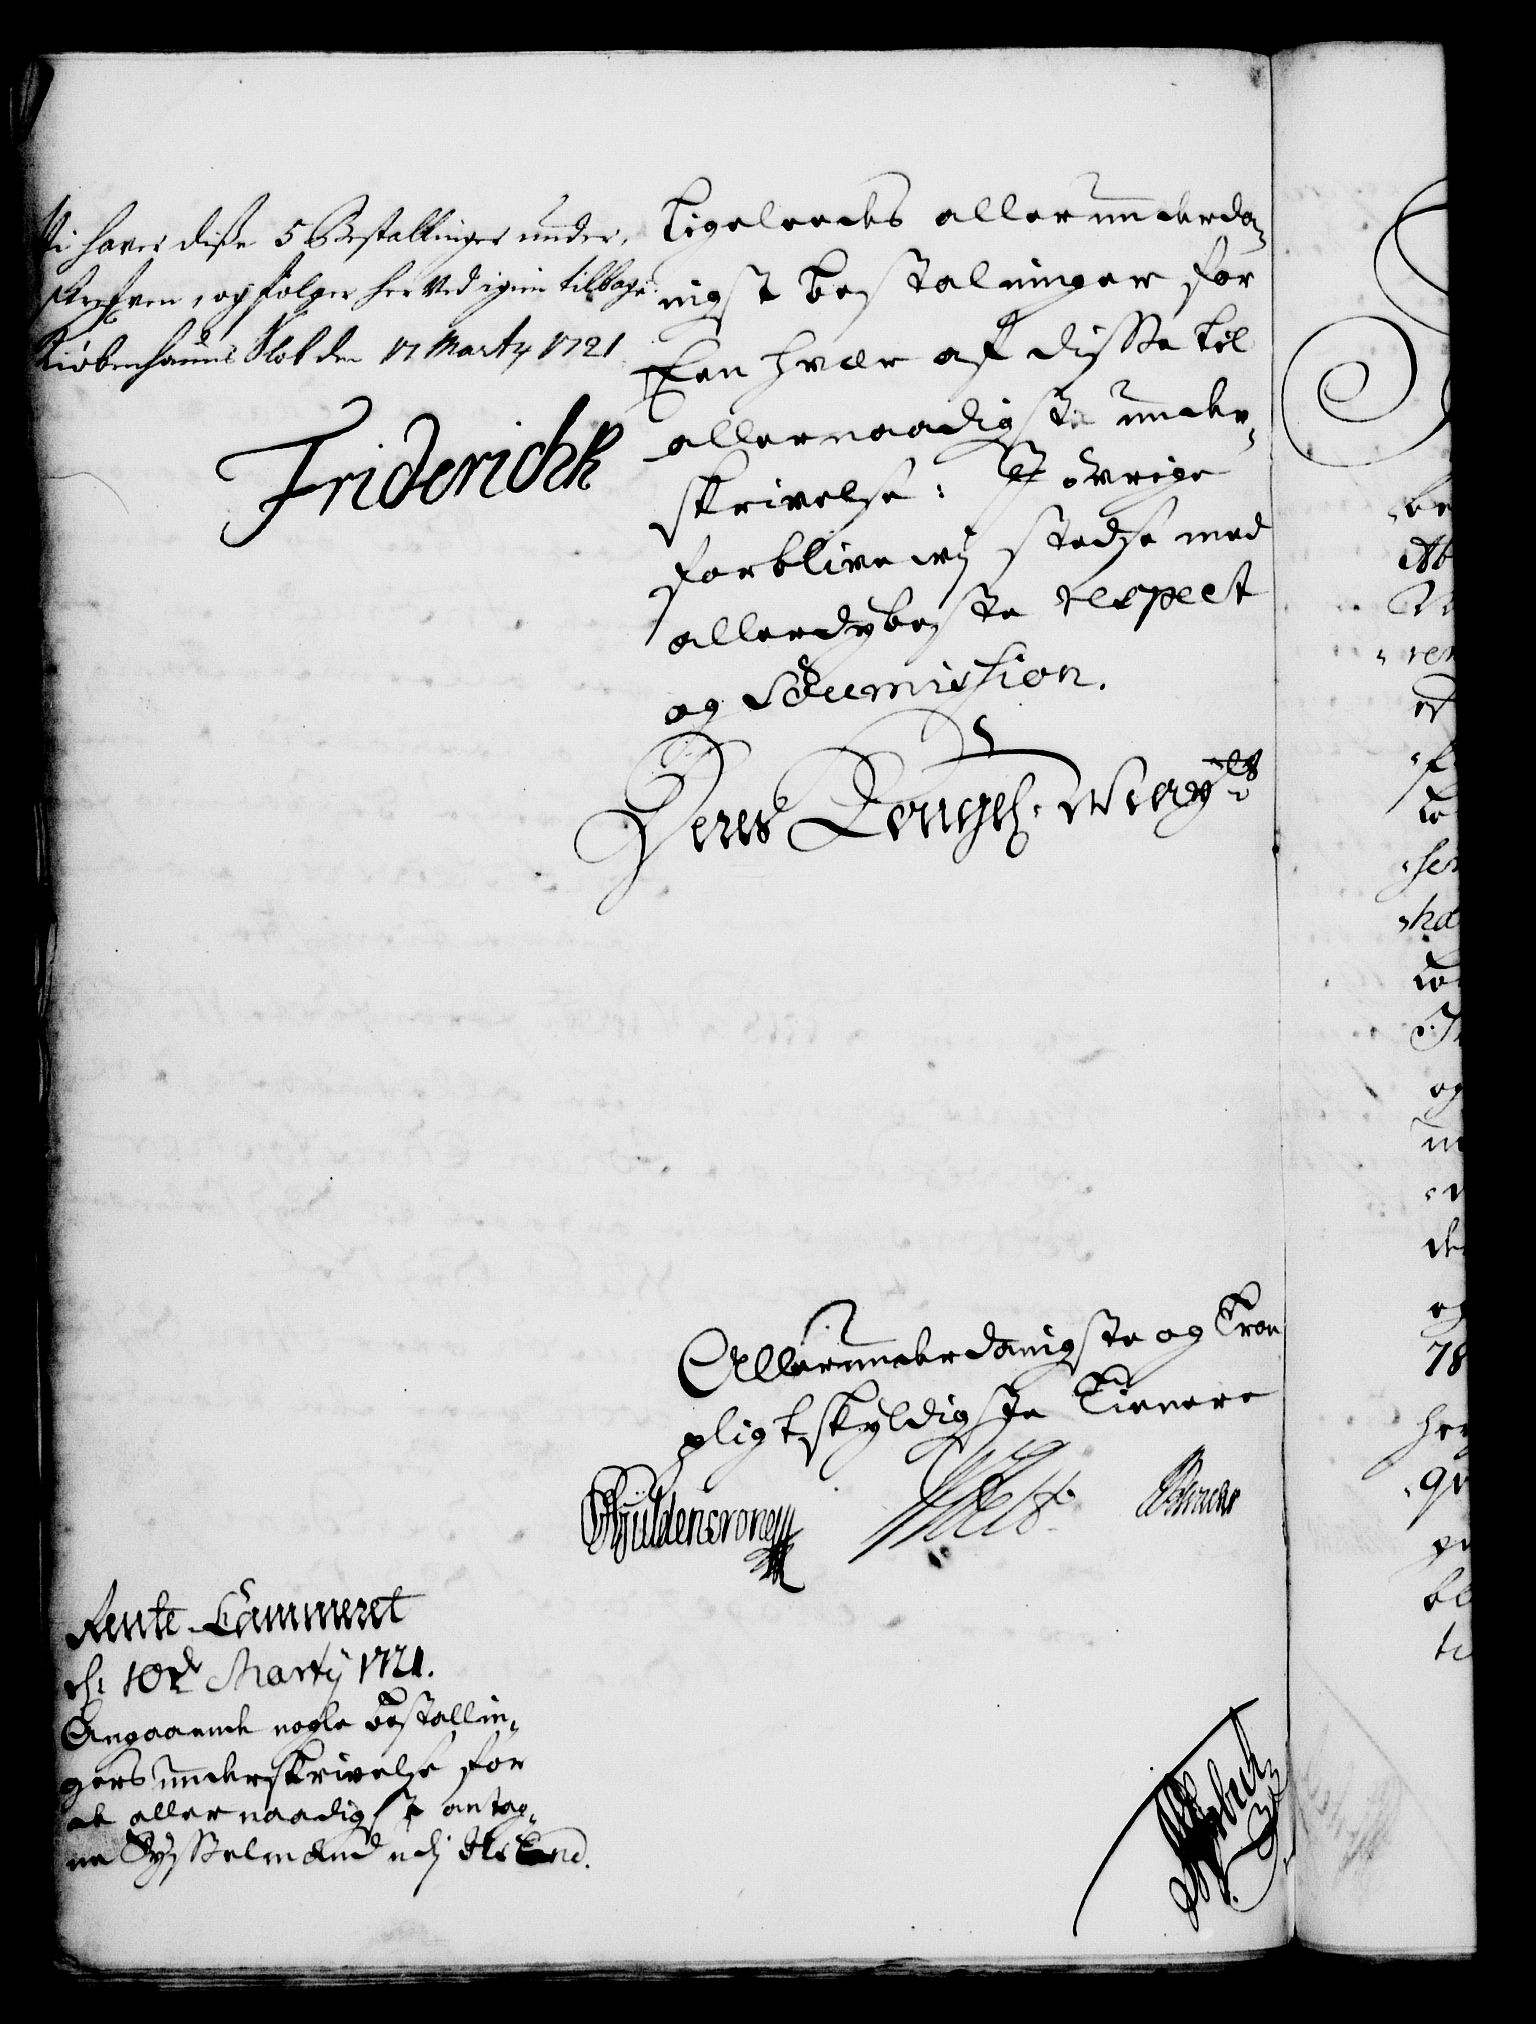 Vi haver diße 5 Bestallinger under,
skrefven, og følger her Ved igien tilbage.
Kiøbenhauns Slot den 17 Marty 1721
Friderich R
Ligeleedes allerunderda,
nigst bestalninger for
Een hvær af disse til
allernaadigste under,
skrivelse: I øvrige
forblive wij stedse med
allerdybeste respect
og Soumission.
Deres Kongel. May.ts
Allerunderdanigste og Troe
pligtskyldigste Tienere
Gyldencrone
Rente-Cammeret
d. 10de Marty 1721.
Angaaende nogle bestallin,
gers underskrivelse for
de allernaadigst antag,
ne Sysselmænd udj Island.